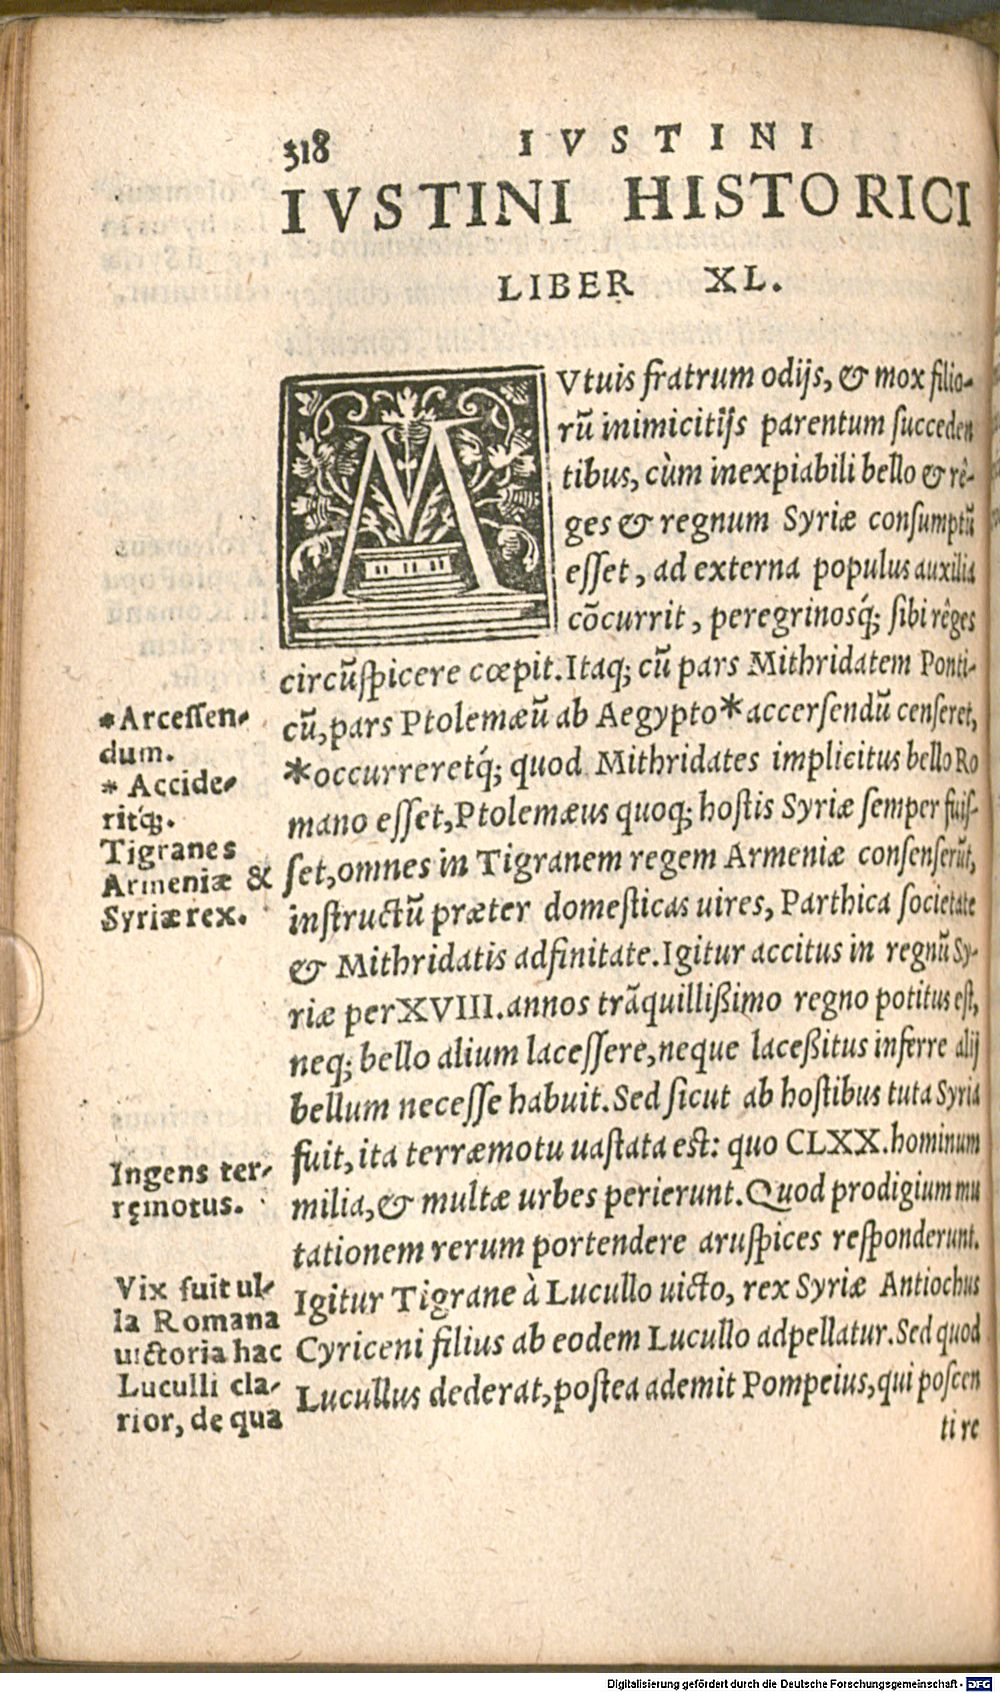 318 IVSTINI
IVSTINI HISTORICI
LIBER XL.
MVtuis fratrum odijs, & mox filio-
rũ inimicitijs parentum succeden
tibus, cùm inexpiabili bello & rê-
ges & regnum Syriæ consumptũ
esset, ad externa populus auxilia
cõcurrit, peregrinosq́; sibi rêges
circũspicere cœpit. Itaq; cũ pars Mithridatem Ponti-
cũ, pars Ptolemæũ ab Aegypto*accersendũ censeret,
*occurreretq́; quod Mithridates implicitus bello Ro
mano esset, Ptolemæus quoq; hostis Syriæ semper fuis-
set, omnes in Tigranem regem Armeniæ consenserũt,
instructũ præter domesticas uires, Parthica societate
& Mithridatis adfinitate. Igitur accitus in regnũ Sy-
riæ per XVIII. annos trãquillißimo regno potitus est,
neq; bello alium lacessere, neque laceßitus inferre alij
bellum necesse habuit. Sed sicut ab hostibus tuta Syria
fuit, ita terræmotu uastata est: quo CLXX. hominum
milia, & multæ urbes perierunt. Quod prodigium mu
tationem rerum portendere aruspices responderunt.
Igitur Tigrane à Lucullo uicto, rex Syriæ Antiochus
Cyriceni filius ab eodem Lucullo adpellatur. Sed quod
Lucullus dederat, postea ademit Pompeius, qui poscen
ti re
*Arcessen-
dum.
* Accide-
ritq́;.
Tigranes
Armeniæ &
Syriæ rex.
Ingens ter-
ręmotus.
Vix fuit ul-
la Romana
uictoria hac
Luculli cla-
rior, de qua
Digitalisierung gefördert durch die Deutsche Forschungsgemeinschaft - DFG